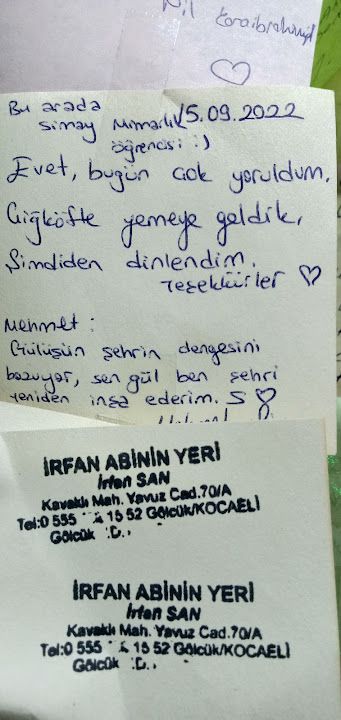 Nil
Karaibrahimgil
Bu arada
Simay Mimarlık 15.09.2022
öğrencisi :)
Evet, bugün çok yoruldum.
Çiğköfte yemeye geldik,
Şimdiden dinlendim.
Teşekkürler ♡
Mehmet :
Gülüşün şehrin dengesini
bozuyor, sen gül ben şehri
yeniden inşa ederim. S ♡
İRFAN ABİNİN YERİ
İrfan SAN
Kavaklı Mah. Yavuz Cad.70/A
Tel:0 555 15 52 Gölcük/KOCAELİ
Gölcük .D..
İRFAN ABİNİN YERİ
İrfan SAN
Kavaklı Mah. Yavuz Cad.70/A
Tel:0 555 15 52 Gölcük/KOCAELİ
Gölcük .D..